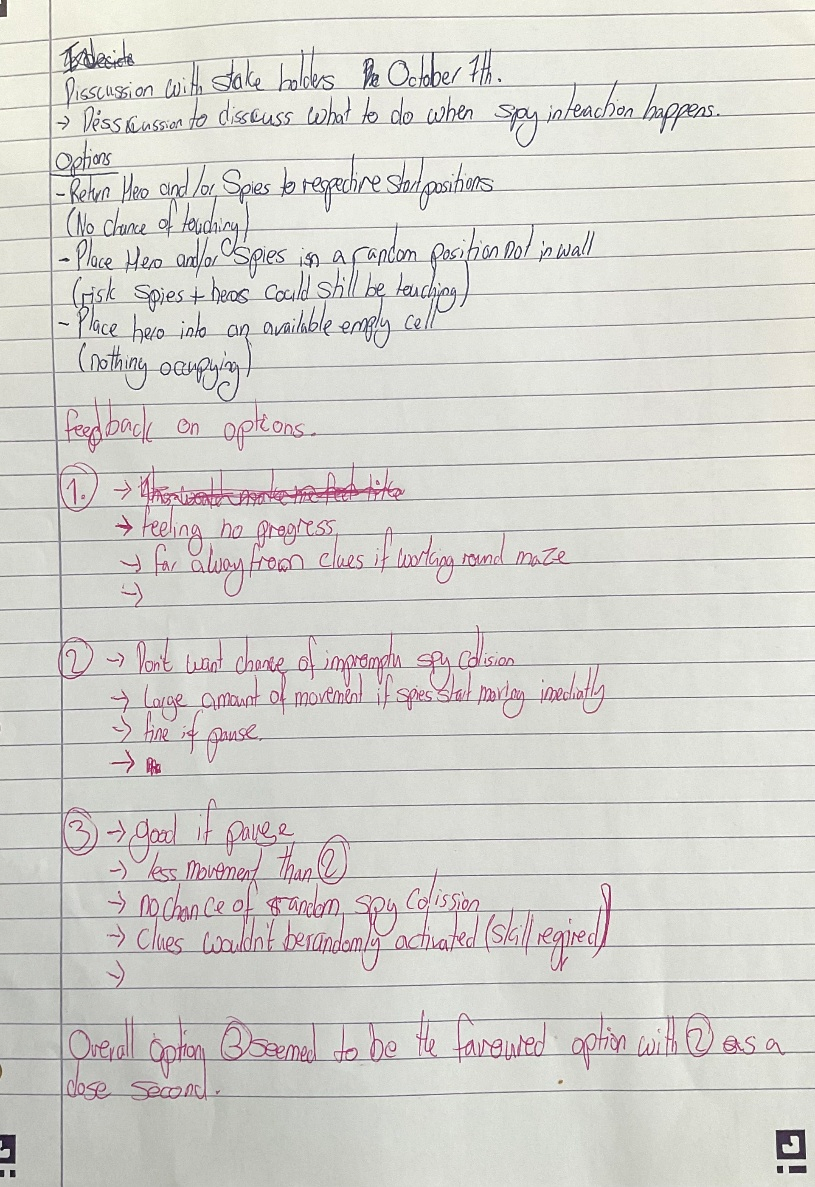 Disscussion with stake holders October 7th.
→ Disscussion to disscuss what to do when spy inteaction happens.
Options
- Return Hero and/or Spies to respective start positions
(No chance of touching)
- Place Hero and/or Spies in a random position not in wall
(risk spies + heros could still be touching)
- Place hero into an available empty cell
(nothing occupying)
feedback on options.
1. →
→ feeling no progress
→ far away from clues if working round maze
→
2 → Don't want chance of impromptu spy colision
→ Large amount of movement if spies start moving imediatly
→ fine if pause.
→
3 → good if pause
→ less movement than 2
→ no chance of random spy colission
→ Clues wouldn't be randomly activated (skill reqired)
→
Overall option 3 seemed to be the favoured option with 2 as a
close second.